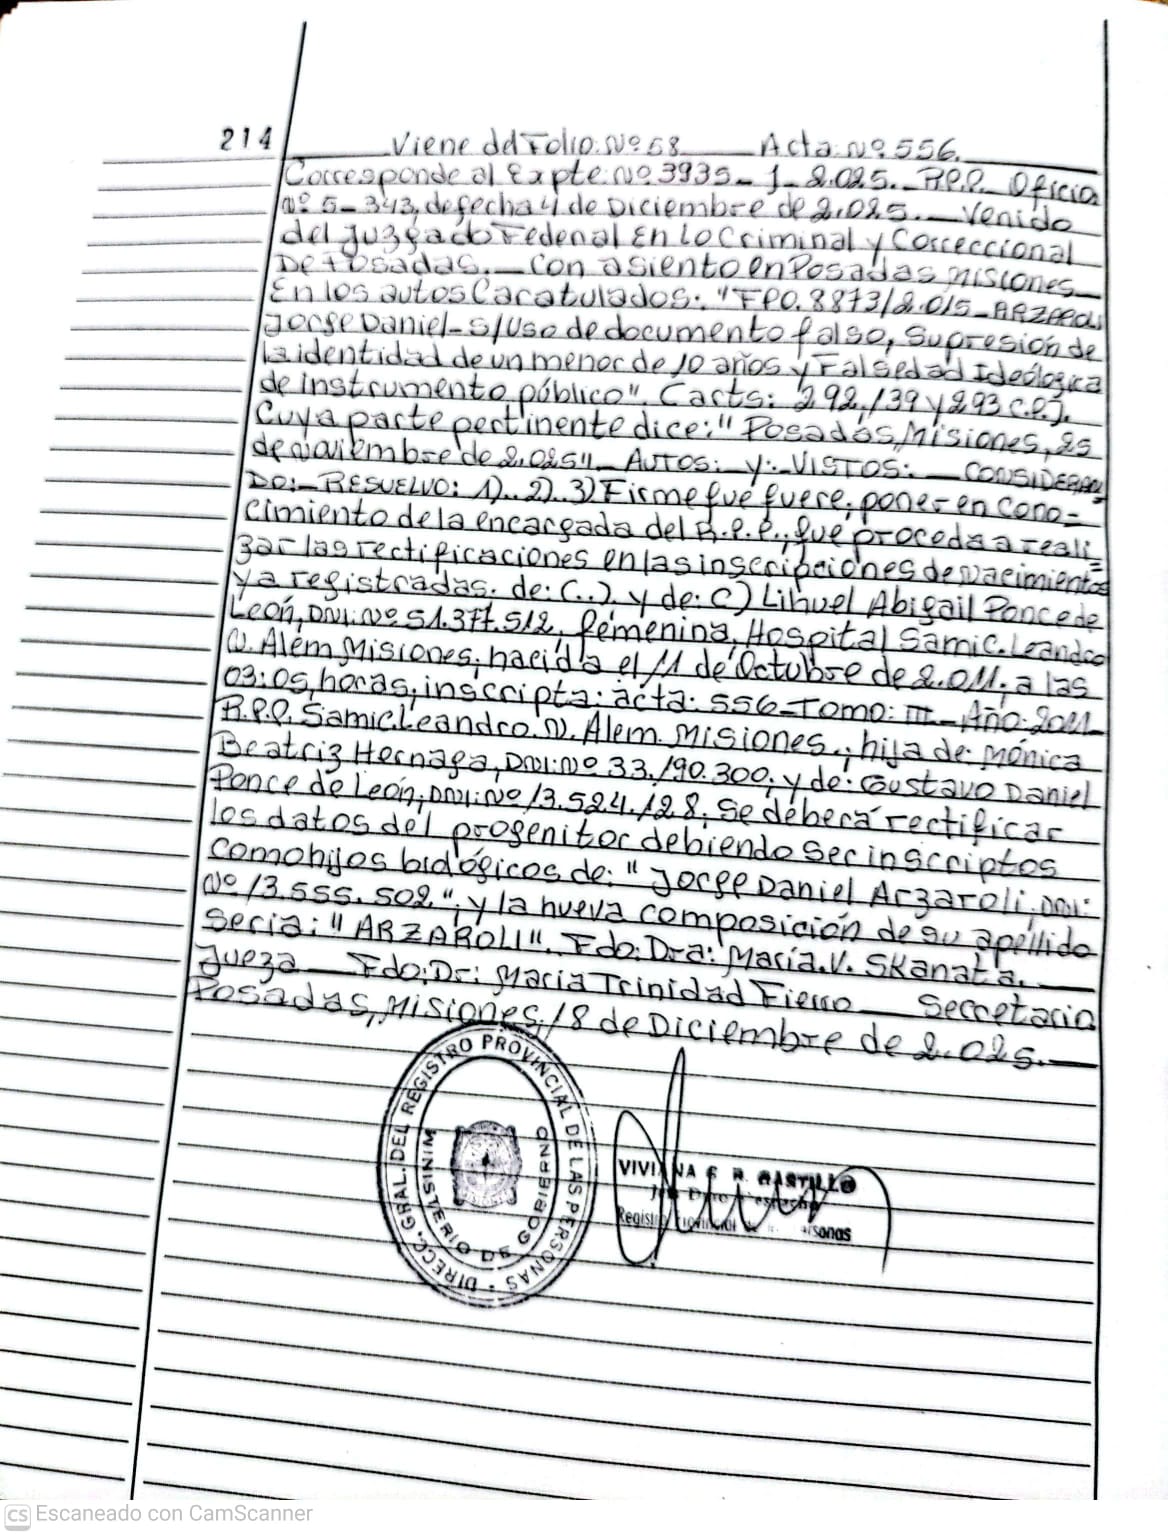 214
Viene del Folio: Nº 68 Acta: Nº 556.
Corresponde al Expte: Nº 3935-1-2.025.- R.P.P. Oficio
Nº 5-343, de fecha 4 de Diciembre de 2.025.- Venido
del Juzgado Federal En lo Criminal y Correccional
De Posadas.- Con asiento en Posadas Misiones
En los autos Caratulados: "FPO. 8873/2.015-ARZAROLI
Jorge Daniel-S/Uso de documento falso, Supresión de
la identidad de un menor de 10 años y Falsedad Ideológica
de instrumento público". Cacts: 292,139 y 293 C.P.).
Cuya parte pertinente dice: "Posadas, Misiones, 25
de noviembre de 2.025"- AUTOS: y:- VISTOS:- CONSIDERAN
DO:- RESUELVO: 1).. 2).. 3) Firme que fuere; poner en cono-
cimiento de la encargada del R.P.P., que proceda a reali
zar las rectificaciones en las inscripciones de nacimientos
ya registradas. de: (..). y de: C) Lihuel Abigail Ponce de
León, DNI: Nº 51.377.512, femenina, Hospital Samic. Leandro
N. Alem Misiones; nacida el 11 de Octubre de 2.011; a las
03:05, horas, inscripta: acta: 556-Tomo: III- Año-2011-
R.P.P. Samic. Leandro. N. Alem. Misiones.; hija de: Mónica
Beatriz Hernaga, DNI: Nº 33.190.300; y de: Gustavo Daniel
Ponce de León; DNI: Nº 13.524.128; Se deberá rectificar
los datos del progenitor debiendo ser inscriptos
como hijos biológicos de: "Jorge Daniel Arzaroli; DNI:
Nº 13.555.502."; y la nueva composición de su apellido
Seria: "ARZAROLI". Fdo: Dra: María. V. Skanata.
Jueza Fdo: Dr: Maria Trinidad Fierro Secretario
Posadas, Misiones, 18 de Diciembre de 2.025.-
DIRECC. GRAL. DEL REGISTRO PROVINCIAL DE LAS PERSONAS
MINISTERIO DE GOBIERNO
VIVIANA R. CASTILLO
Registro Provincial de Personas
CS Escaneado con CamScanner